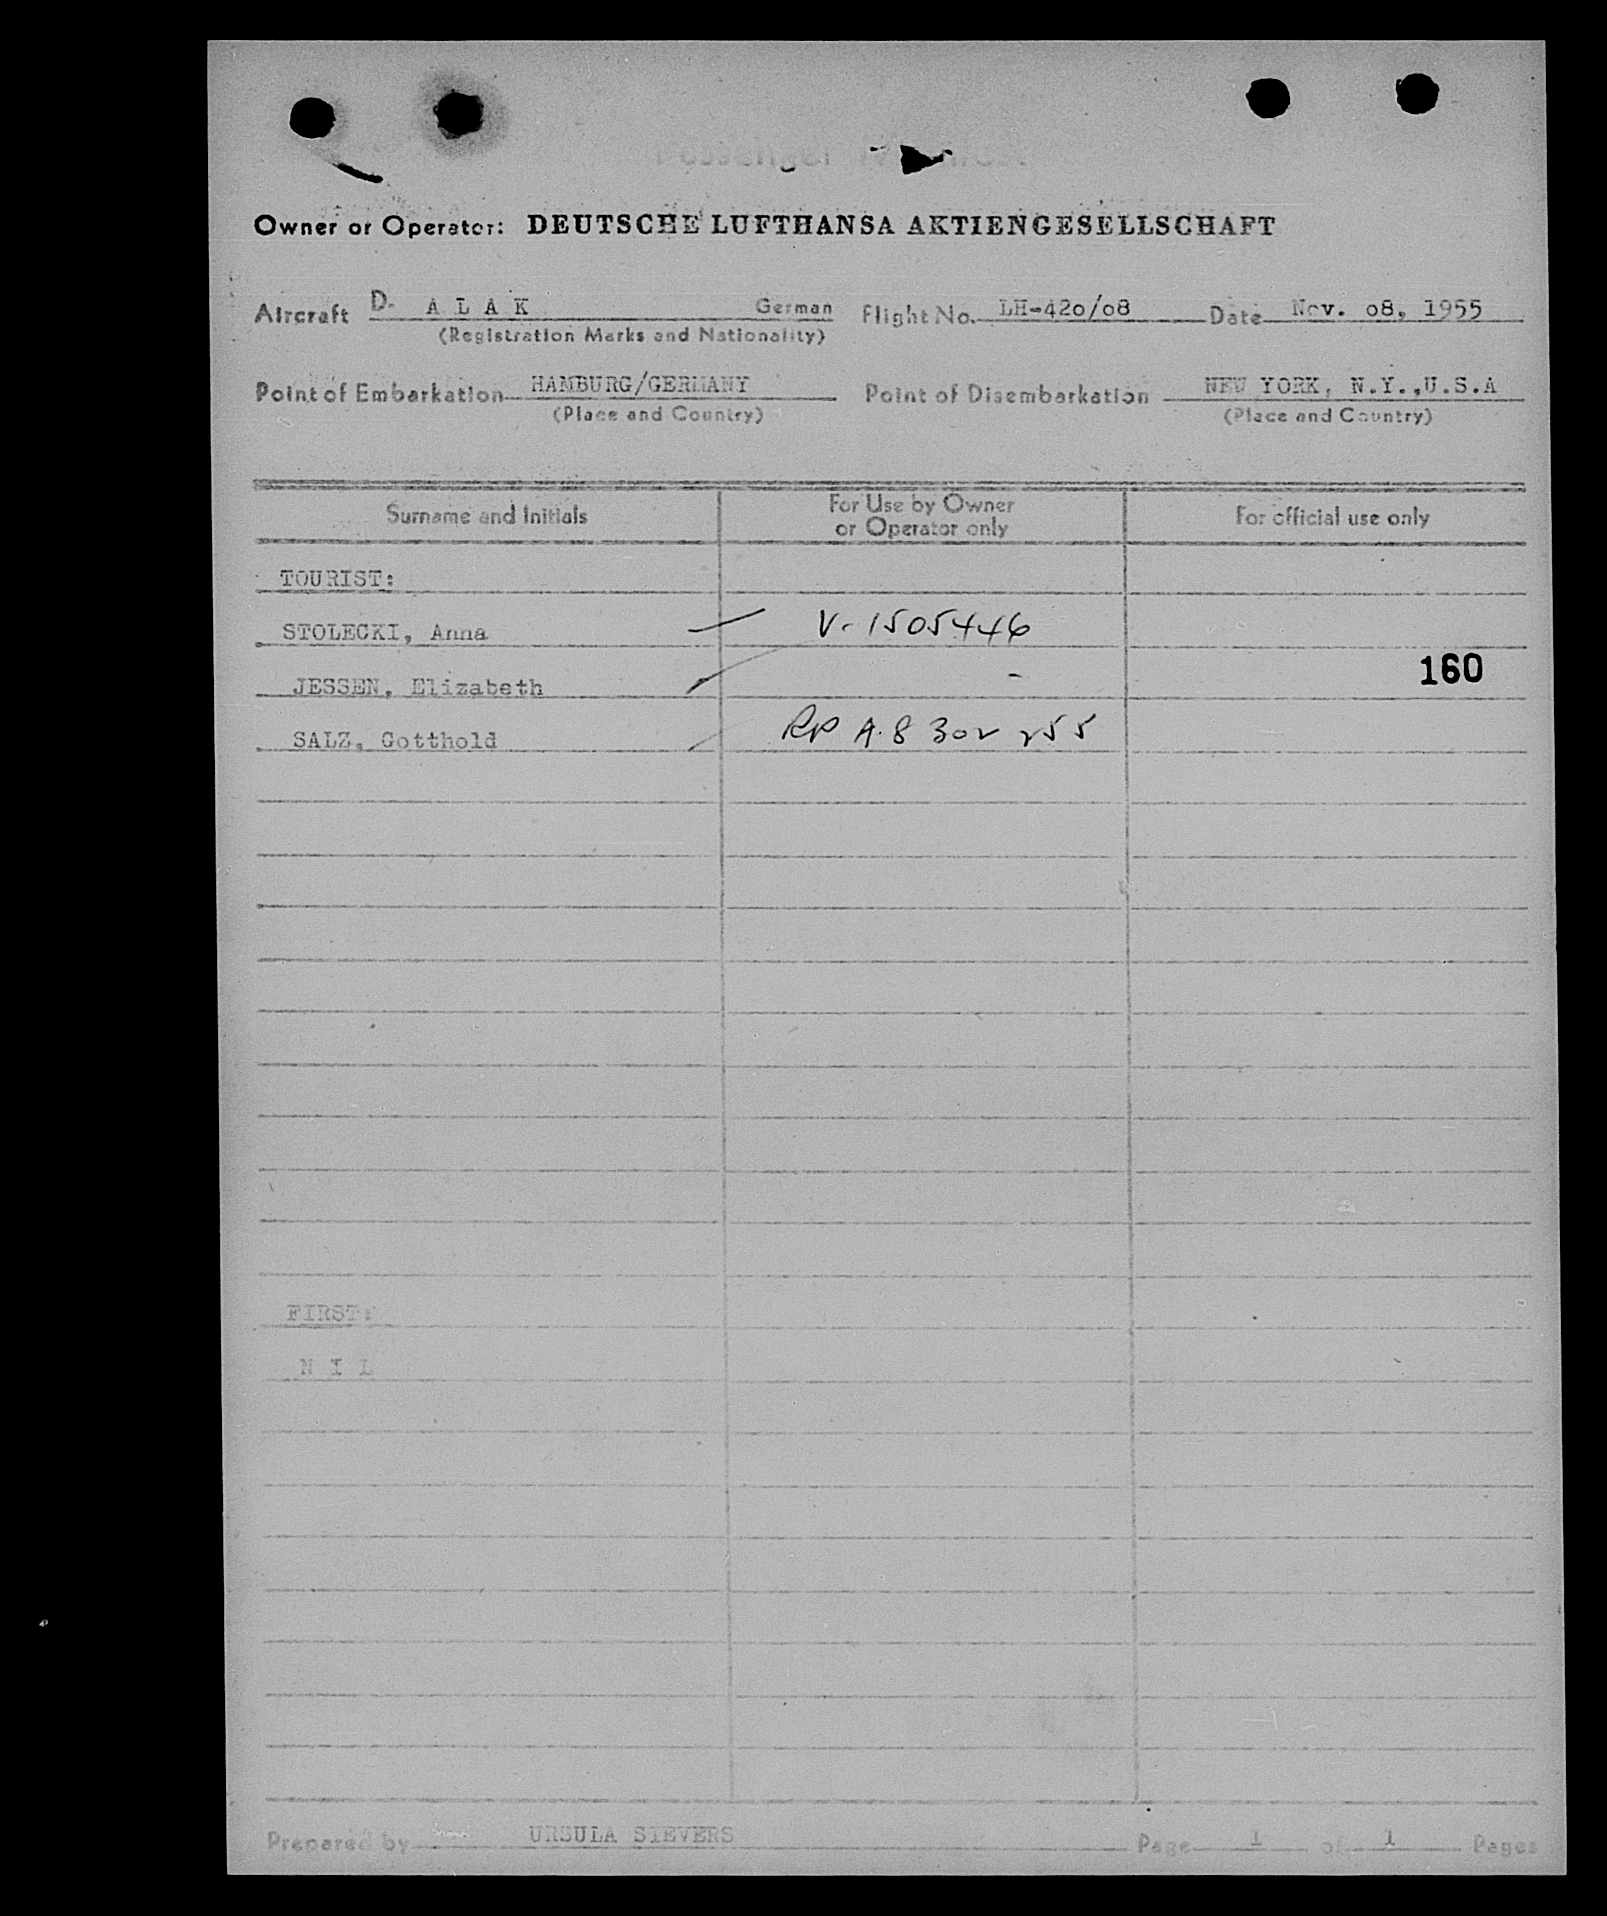 Passenger Manifest
Owner or Operator: DEUTSCHE LUFTHANSA AKTIENGESELLSCHAFT
Aircraft D- A L A K German Flight No. LH-42o/o8 Date Nov. o8, 1955
(Registration Marks and Nationality)
Point of Embarkation HAMBURG/GERMANY Point of Disembarkation NEW YORK, N.Y.,U.S.A
(Place and Country) (Place and Country)
Surname and Initials For Use by Owner or Operator only For official use only
TOURIST:
STOLECKI, Anna V-1505446
JESSEN, Elizabeth - 160
SALZ, Gotthold RP A.8 302 255
FIRST:
N I L
Prepared by URSULA SIEVERS Page 1 of 1 Pages